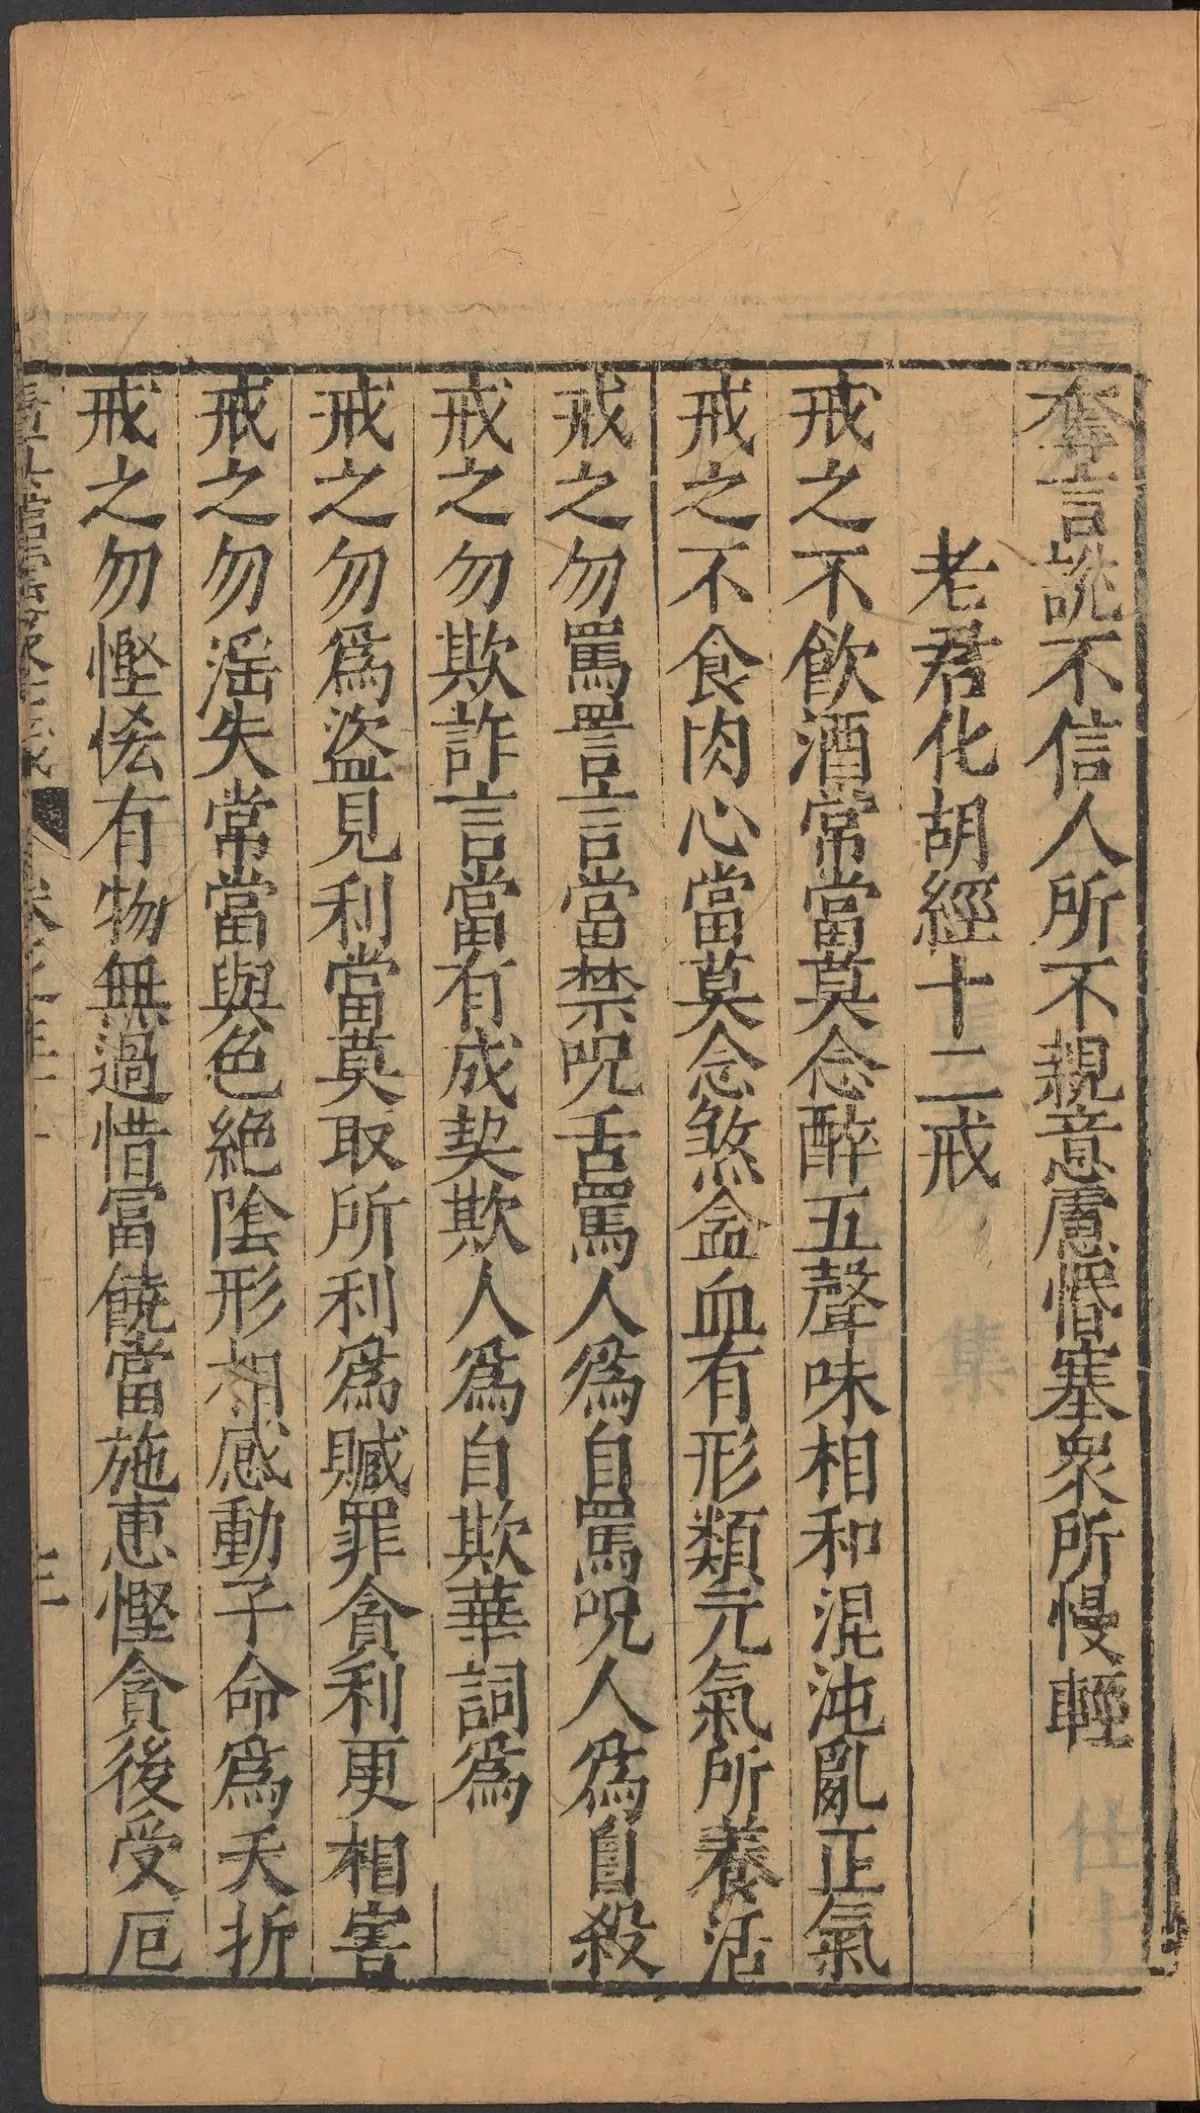 奪言訛不信人所不親意慮惛塞衆所慢輕
老君化胡經十二戒
戒之不飲酒常當莫念醉五聲味相和混沌亂正氣
戒之不食肉心當莫念煞盒血有形類元氣所養活
戒之勿罵詈言當禁呪舌罵人爲自罵呪人爲自殺
戒之勿欺詐言當有成契欺人爲自欺華詞爲
戒之勿爲盜見利當莫取所利爲贓罪貪利更相害
戒之勿滛失常當與色絕陰形相感動子命爲夭折
戒之勿慳悋有物無過惜當饒當施恵慳貪後受厄
三